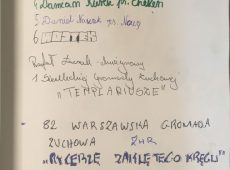 4 Damian
5 Daniel Nowak ps.
6
Rafał Żurek - drużynowy
1 Siedleckiej Gromady Zuchowej
„TEMPLARIUSZE”
82 WARSZAWSKA GROMADA
ZUCHOWA ZHR
„RYCERZE ZAKLĘTEGO KRĘGU”